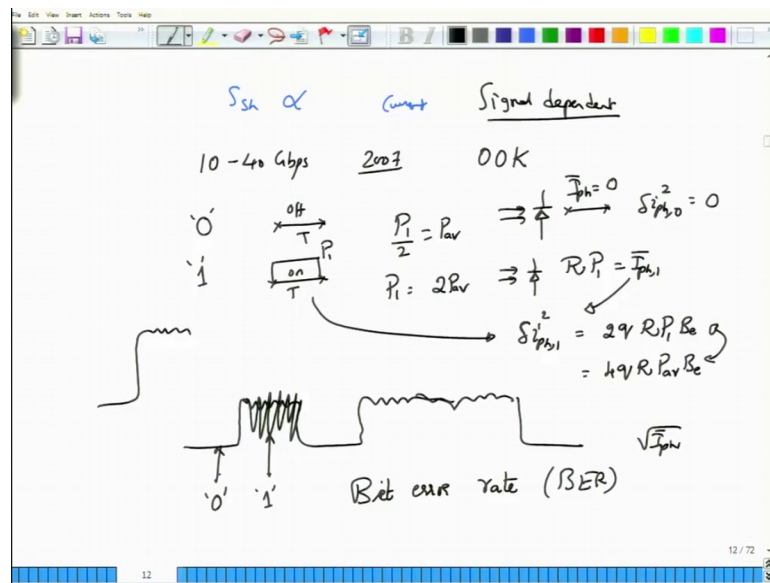 File Edit View Insert Actions Tools Help
S_sh ∝ Current Signal dependent
10-40 Gbps 2007 OOK
'0' off T P₁/2 = Pav I̅ph=0 δi²ph,0 = 0
'1' on T P₁ P₁ = 2Pav R P₁ = I̅ph,1
δi²ph,1 = 2q R P₁ Be
= 4q R Pav Be
√I̅ph
'0' '1' Bit error rate (BER)
12 / 72
12